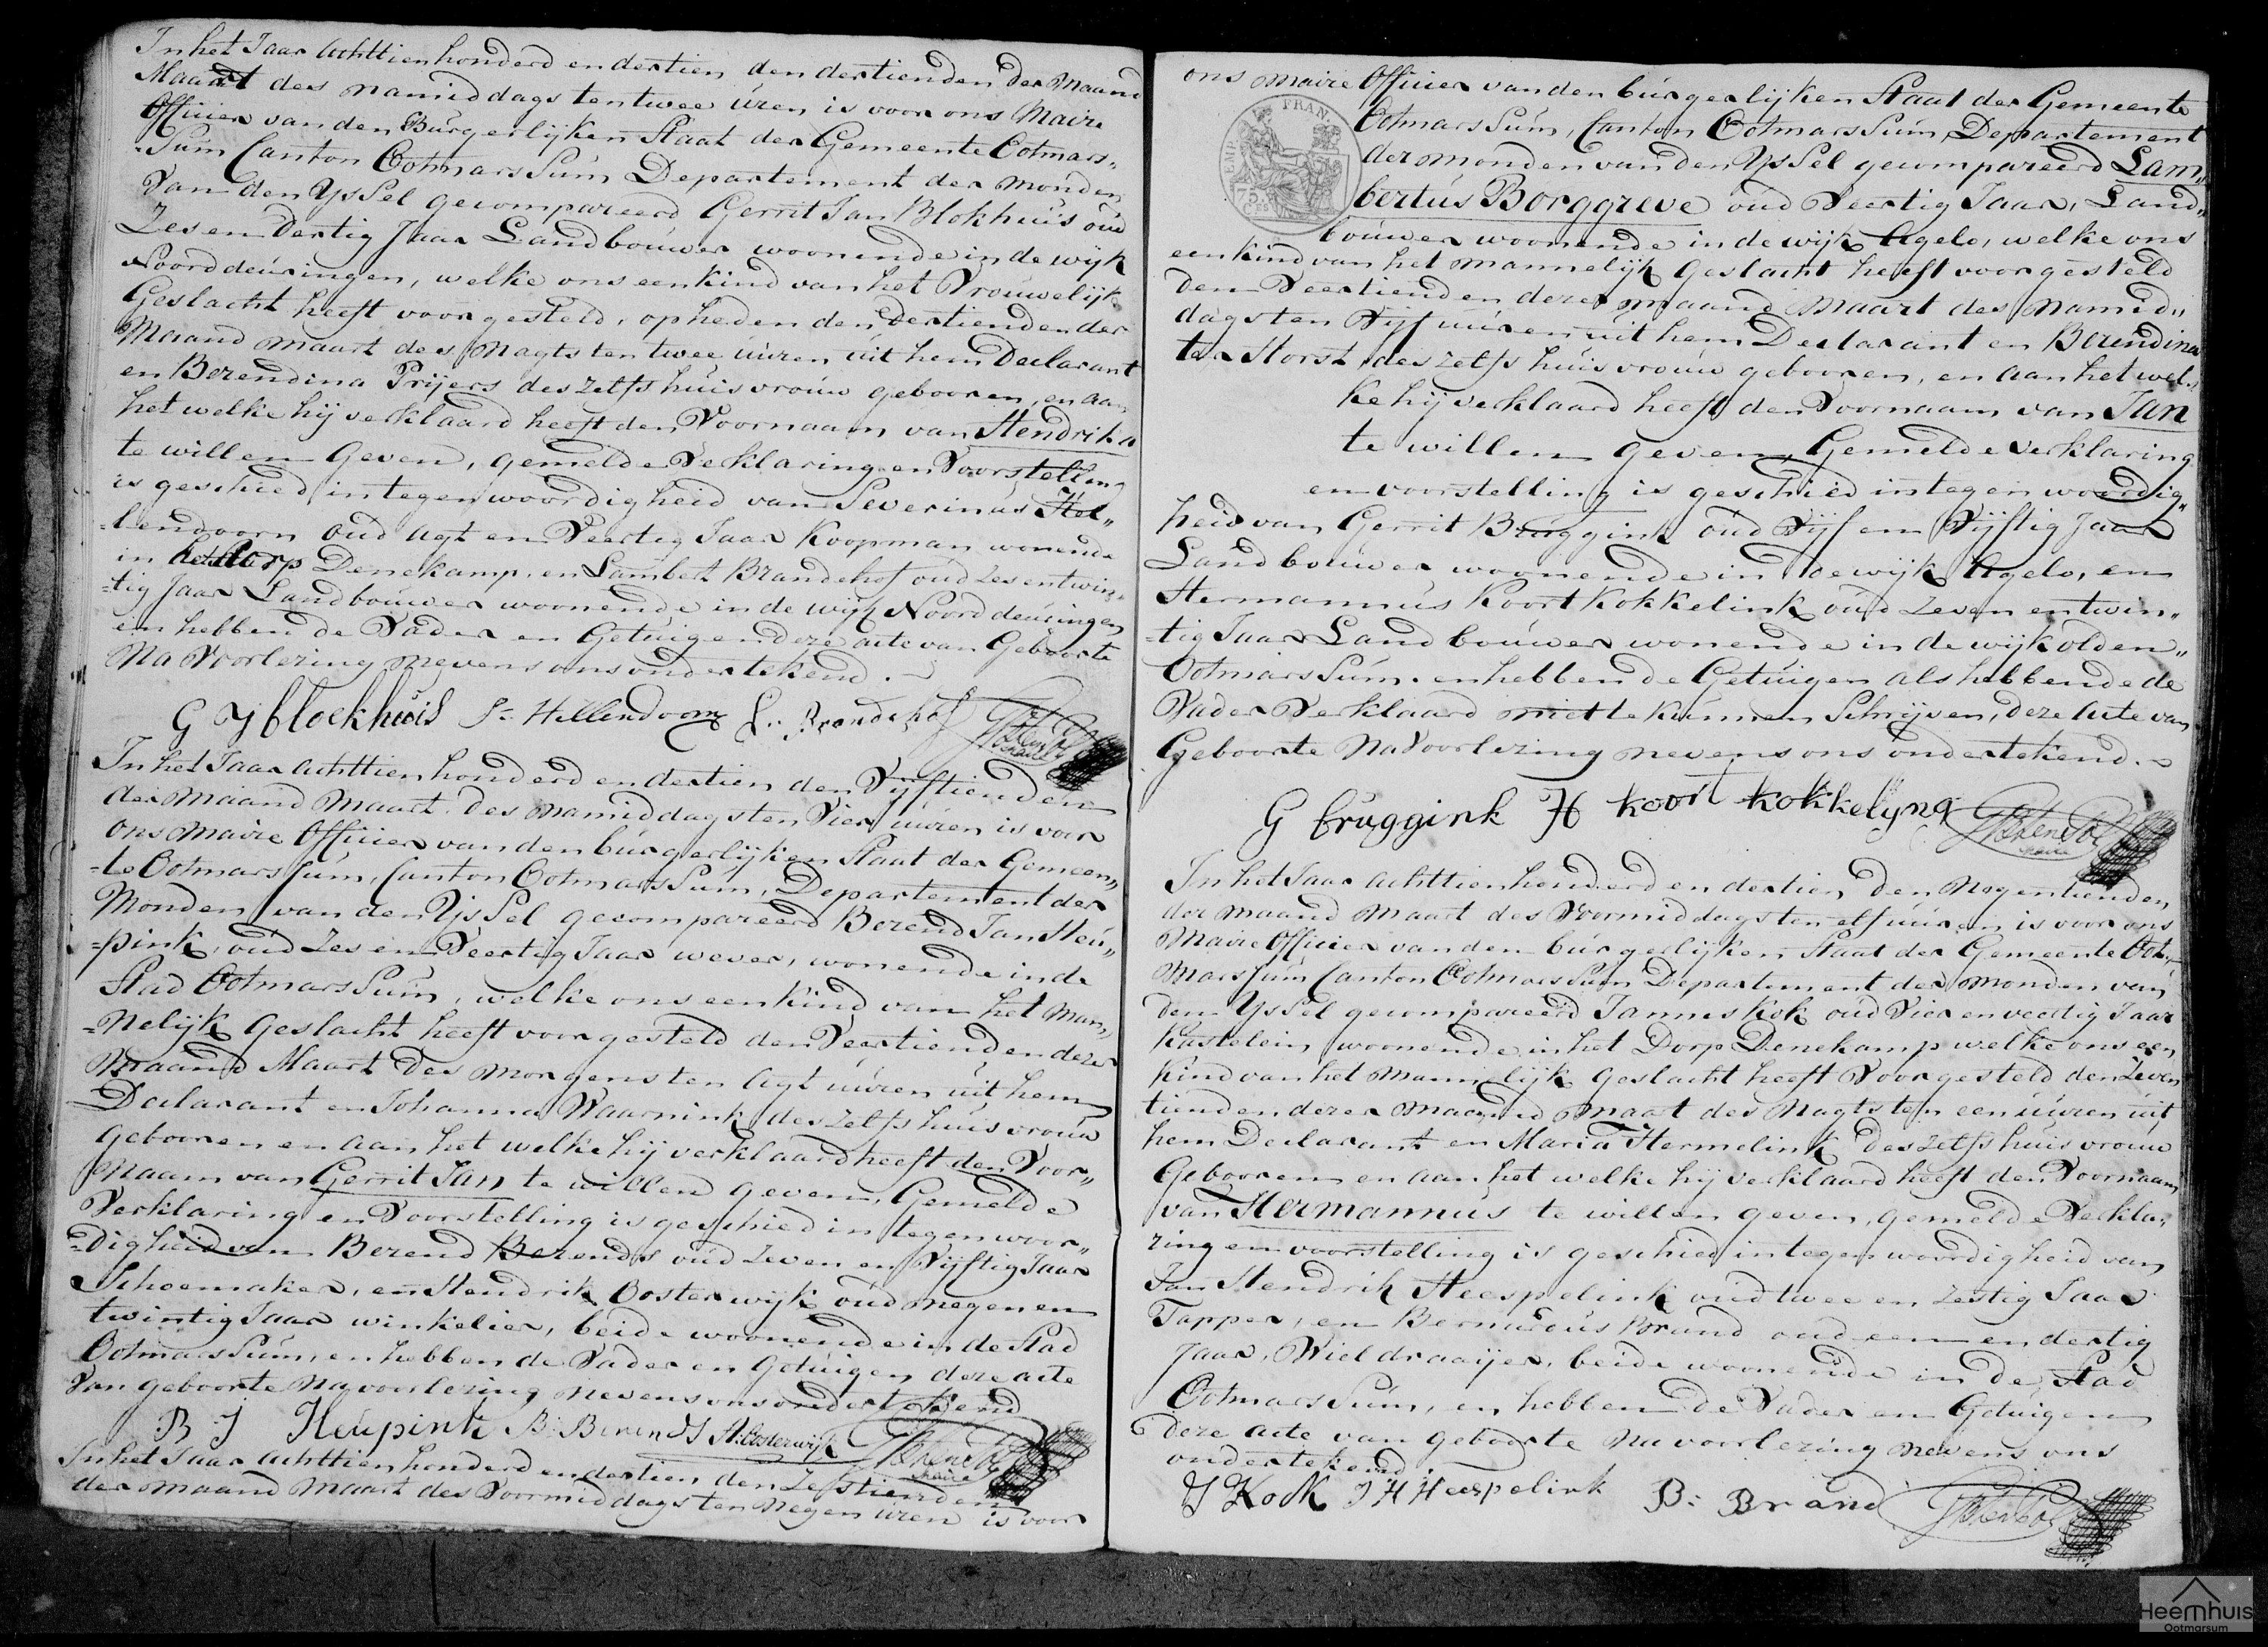 In het Jaar Achttienhonderd en dertien den dertienden der Maand
Maart des namiddags ten twee üren is voor ons Maire
Officier van den Bürgerlijken Staat der Gemeente Ootmars„
-Süm Canton Ootmarssüm Departement der monden
van den Yssel gecompareerd Gerrit Jan Blokhuis oüd
Zes en Dertig Jaar Landboüwer woonende in de wijk
Noorddeüringen, welke ons een kind van het Vroüwelijk
Geslacht heeft voorgesteld, op heden den dertienden der
Maand maart des Nagts ten twee üüren üit hem Declarant
en Berendina Prijers deszelfs hüisvroüw gebooren, en aan
het welke hij verklaard heeft den Voornaam van Hendrika
te willen Geven, gemelde Verklaring en Voorstelling
is geschied in tegenwoordigheid van Severinüs Hel„
-lendoorn oüd agt en Veertig Jaar Koopman wonende
in het dorp Denekamp, en Lambert Brandehof oüd Zes en twin„
-tig Jaar Landboüwer woonende in de wijk Noorddeüringen
en hebben de Vader en Getüigen deze acte van Geboorte
Na Voorlezing nevens ons ondertekend.
G J blockhuis S: Hellendoorn L: Brandehof
Maire
In het Jaar achttienhonderd en dertien den Vijftienden
der maand Maart des namiddags ten Vier üüren is voor
ons maire Officier van den bürgerlijken Staat der Gemeen„
-te Ootmarssüm, Canton Ootmarssüm, Departement der
Monden van den Yssel gecompareerd Berend Jan Heü„
-pink, oüd Zes en Veertig Jaar wever, wonende in de
Stad Ootmarssüm, welke ons een kind van het Man„
-nelijk Geslacht heeft voorgesteld den Veertienden dezer
Maand Maart des morgens ten Agt üüren üit hem
Declarant en Johanna Waarnink deszelfs hüisvroüw
gebooren en aan het welke hij verklaard heeft den Voor„
Naam van Gerrit Jan te willen geven, Gemelde
Verklaring en Voorstelling is geschied in tegenwoor„
-digheid van Berend Berends oüd Zeven en Vijftig Jaar
Schoemaker, en Hendrik Oosterwijk oüd negen en
twintig Jaar winkelier, beide woonende in de Stad
Ootmarssüm, en hebben de Vader en Getüigen deze acte
van geboorte na voorlezing nevens ons ondertekend
B J Heüpink B: Berends H: Oosterwijk
Maire
In het Jaar achttienhonderd en dertien den Zestienden
der maand Maart des Voormiddags ten Negen üren is voor
ons maire Officier van den bürgerlijken Staat der Gemeente
EMP. FRAN.
75. C.
Ootmarssüm, Canton Ootmarssüm, Departement
der monden van den Yssel gecompareerd Lam„
bertüs Borggreve oüd Veertig Jaar, Land„
boüwer woonende in de wijk Agelo, welke ons
een kind van het mannelijk Geslacht heeft voorgesteld
den Veertienden dezer maand Maart des Namid„
dags ten Vijf üüren üit hem Declarant en Berendina
ter Horst deszelfs hüisvroüw gebooren, en aan het wel„
ke hij verklaard heeft den Voornaam van Jan
te willen geven, Gemelde verklaring
en voorstelling is geschied in tegenwoordig„
heid van Gerrit Brüggink oüd Vijf en Vijftig Jaar
Landboüwer woonende in de wijk Agelo, en
Hermannüs Koort Kokkelink oüd Zeven en twin„
-tig Jaar Landboüwer wonende in de wijk olden„
Ootmarssüm. en hebben de Getüigen als hebbende de
Vader Verklaard niet te künnen Schrijven, deze acte van
Geboorte Na Voorlezing nevens ons ondertekend.
G brüggink H koort kokkelyng
Maire
In het Jaar achttienhonderd en dertien den Negentienden
der maand Maart des Voormiddags ten elf üüren is voor ons
Maire Officier van den bürgerlijken Staat der Gemeente Oot„
Marssüm Canton Ootmarssüm Departement der monden van
den Yssel gecompareerd Jannes Kok oüd Vier en veertig Jaar
Kastelein, woonende in het Dorp Denekamp welke ons een
Kind van het Mannelijk Geslacht heeft Voorgesteld den Zeven
tienden dezer maand maart des Nagts ten een üüren üit
hem Declarant en Maria Hermelink deszelfs hüisvroüw
Gebooren en aan het welke hij verklaard heeft den Voornaam
van Hermannüs te willen geven, gemelde Verkla„
ring en voorstelling is geschied in tegenwoordigheid van
Jan Hendrik Heespelink oüd twee en Zestig Jaar
Tapper, en Bernardüs Brand oüd een en dertig
Jaar, Wieldraaijer, beide woonende in de Stad
Ootmarssüm, en hebben de Vader en Getüigen
deze acte van geboorte na voorlezing nevens ons
ondertekend.
J Kok J H Heespelink B: Brand
Heemhuis
Ootmarsum